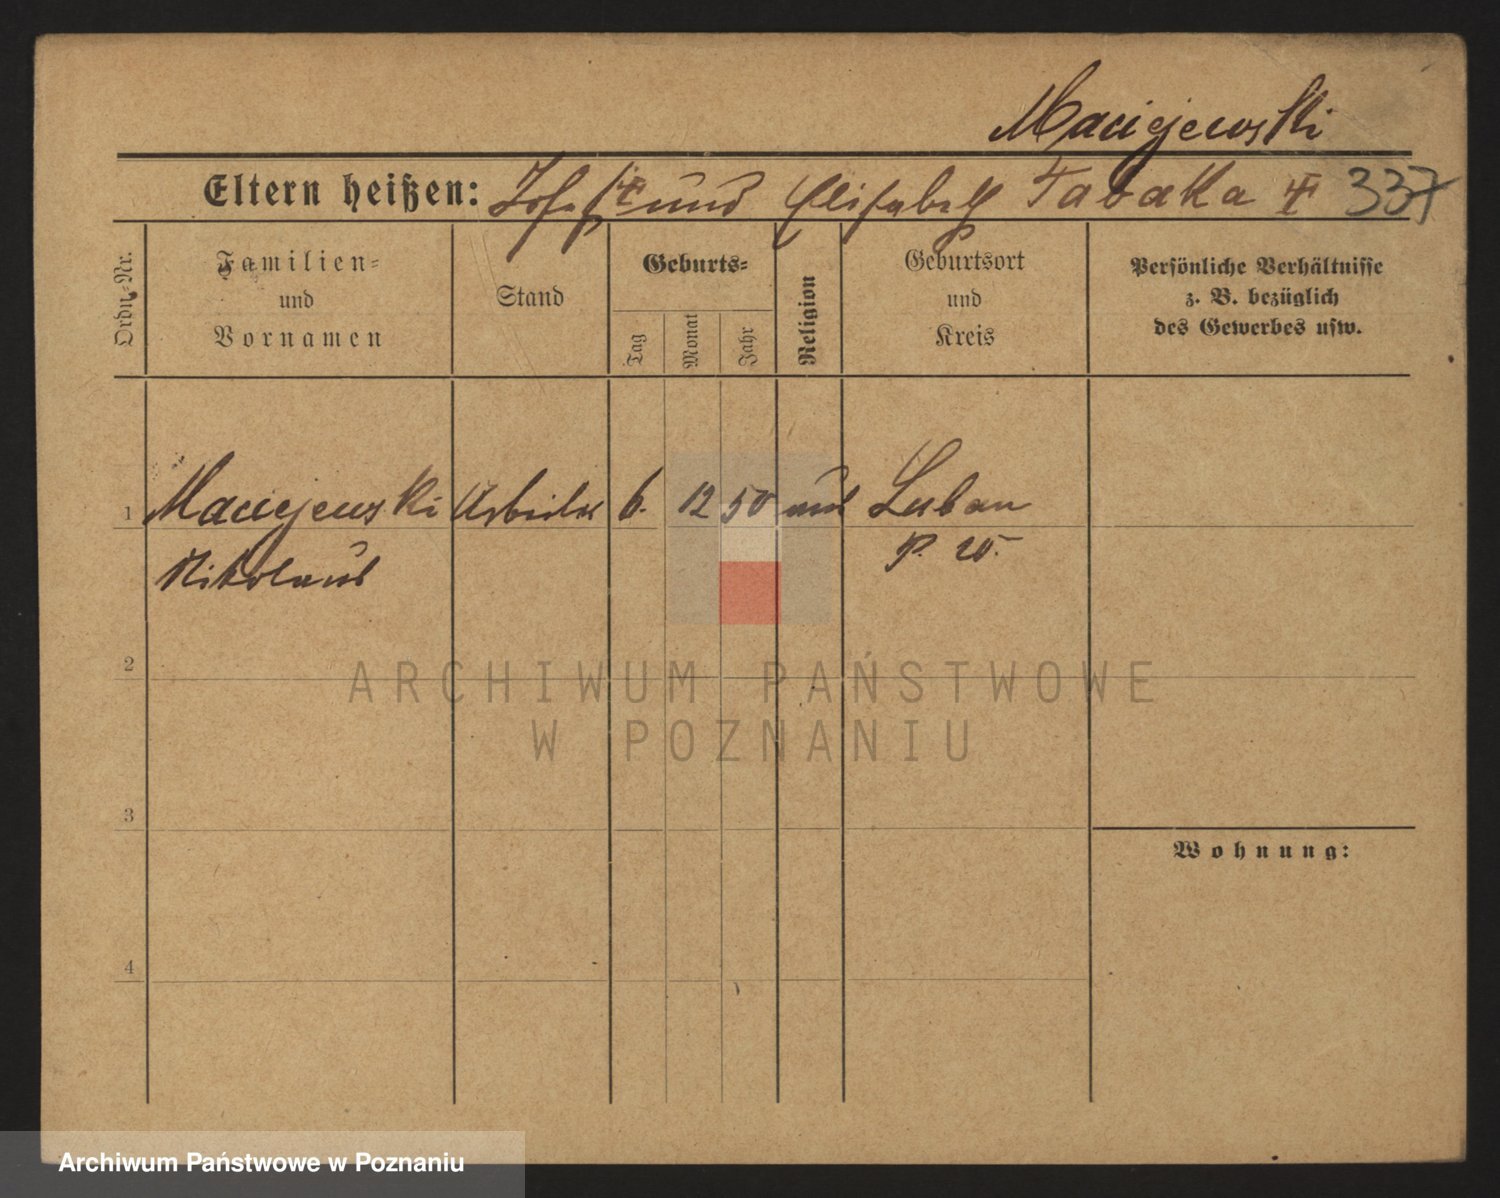 Maciejewski
Eltern heißen: Josef ☨ und Elisabeth Tabaka ☨ 337
Ordn.-Nr.
Familien-
und
Vornamen
Stand
Geburts-
Tag
Monat
Jahr
Religion
Geburtsort
und
Kreis
Persönliche Verhältnisse
z. B. bezüglich
des Gewerbes usw.
1 Maciejewski Arbeiter 6. 12 50 Luban
Nikolaus P. W.
2
3
4
Wohnung:
ARCHIWUM PAŃSTWOWE
W POZNANIU
Archiwum Państwowe w Poznaniu